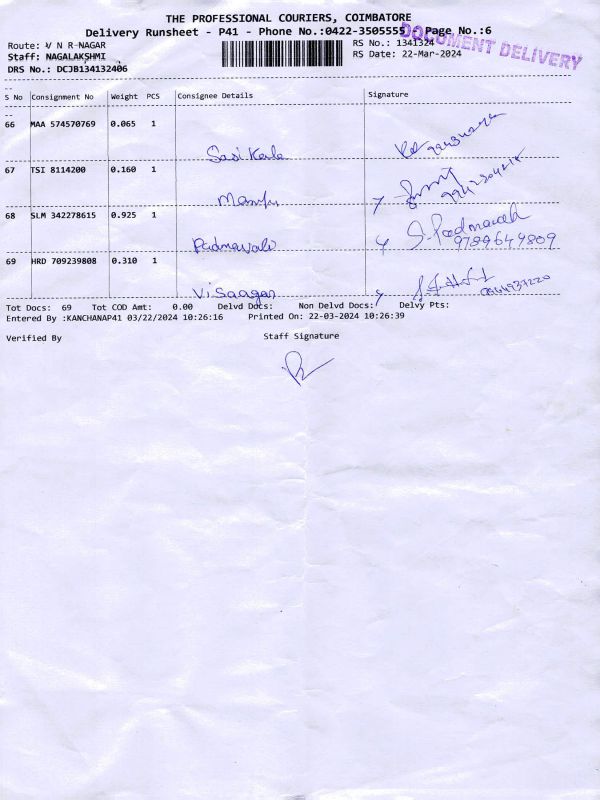 THE PROFESSIONAL COURIERS, COIMBATORE
Delivery Runsheet - P41 - Phone No.:0422-3505555 Page No.:6
DOCUMENT DELIVERY
Route: V N R-NAGAR RS No.: 1341324
Staff: NAGALAKSHMI RS Date: 22-Mar-2024
DRS No.: DCJB134132406
S No Consignment No Weight PCS Consignee Details Signature
66 MAA 574570769 0.065 1
Sasi Kala
67 TSI 8114200 0.160 1
68 SLM 342278615 0.925 1
Padmavathi S. Padmavathi
9789649809
69 HRD 709239808 0.310 1
Visaagan
Tot Docs: 69 Tot COD Amt: 0.00 Delvd Docs: Non Delvd Docs: Delvy Pts:
Entered By :KANCHANAP41 03/22/2024 10:26:16 Printed On: 22-03-2024 10:26:39
Verified By Staff Signature